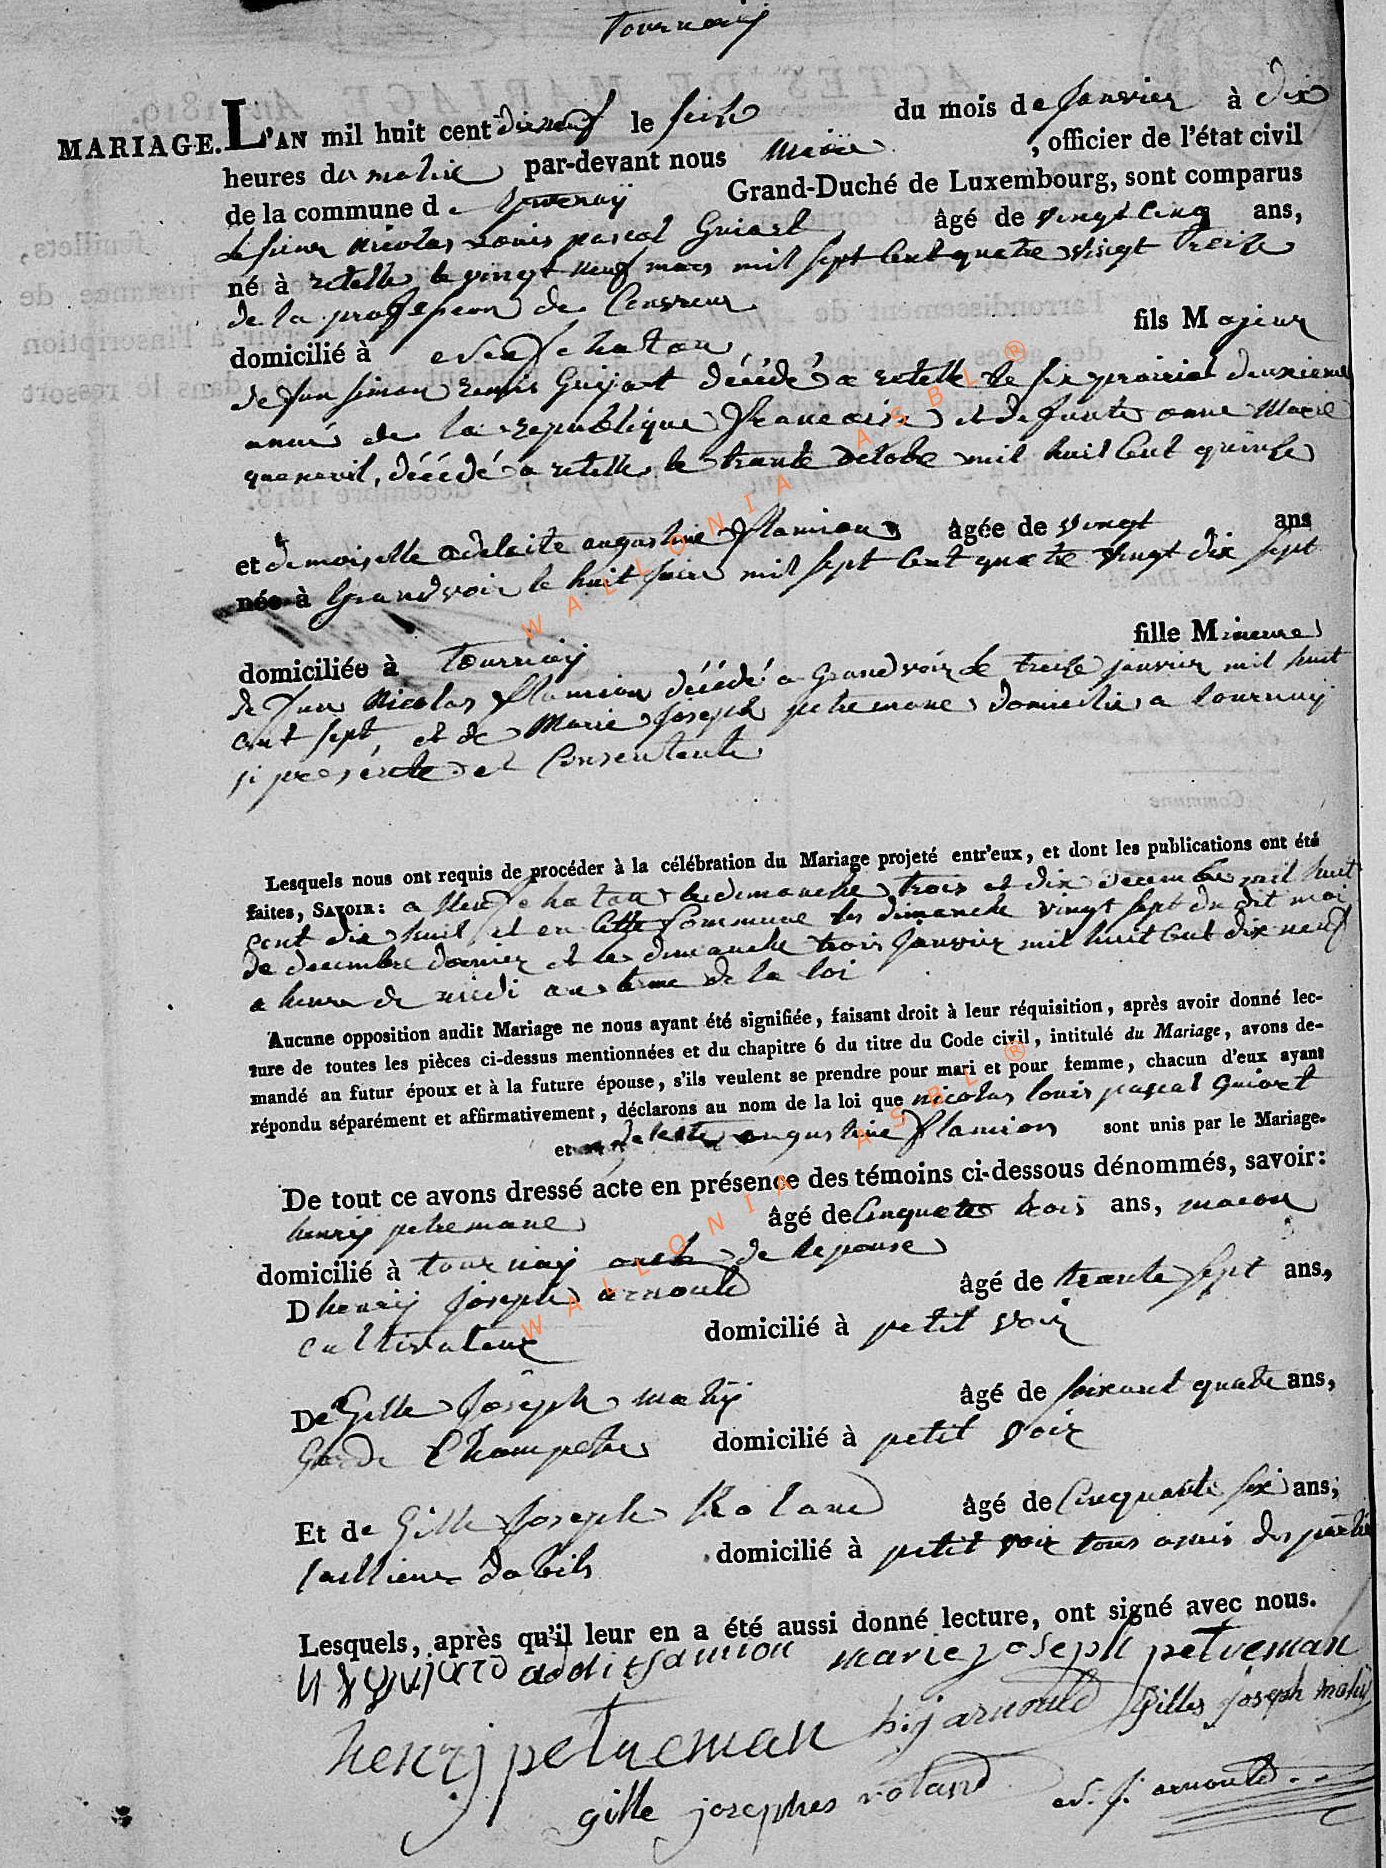 Tournay
MARIAGE. L'AN mil huit cent dix neuf le seize du mois de Janvier à dix
heures du matin par-devant nous Maire , officier de l'état civil
de la commune de Tournay Grand-Duché de Luxembourg, sont comparus
Le sieur Nicolas Louis pascal Guiart âgé de vingt cinq ans,
né à retelle le vingt neuf mars mil sept cent quatre vingt treize
de la profession de Couvreur
domicilié à Neufchatau fils Majeur
de feu simon Guyart décédé a retelle le six prairial deuxieme
année de la republique francaise et de funte anne Marie
quenevil, décédé a retelle le trante octobe mil huit cent quinze
et demoiselle adeleite augustine flamion âgée de vingt ans
née à Grandvoir le huit mil sept cent quatre vingt dix sept
domiciliée à tournay fille Mineure
de feu Nicolas flamion décédé a grandvoir le treize janvier mil huit
cent sept, et de Marie Joseph petremane domicilié a tournay
si presente et Consentente
Lesquels nous ont requis de procéder à la célébration du Mariage projeté entr'eux, et dont les publications ont été
faites, SAVOIR: a Neufchatau le dimanche trois et dix decembe mil huit
cent dix huit et en cette Commune les dimanche vingt sept du dit moi
de decembre dernier et le dimanche trois Janvier mil huit cent dix neuf
a heure de midi au terme de la loi
Aucune opposition audit Mariage ne nous ayant été signifiée, faisant droit à leur réquisition, après avoir donné lec-
ture de toutes les pièces ci-dessus mentionnées et du chapitre 6 du titre du Code civil, intitulé du Mariage, avons de-
mandé au futur époux et à la future épouse, s'ils veulent se prendre pour mari et pour femme, chacun d'eux ayant
répondu séparément et affirmativement, déclarons au nom de la loi que nicolas louis pascal Guiart
et adeleite augustine flamion sont unis par le Mariage.
De tout ce avons dressé acte en présence des témoins ci-dessous dénommés, savoir:
henrij petremane âgé de Cinquate trois ans, macon
domicilié à tournay oncle de lepouse
D henrij Joseph arnould âgé de trante sept ans,
cultivateur domicilié à petit voir
De Gille Joseph mathij âgé de soixant quate ans,
Garde Champetre domicilié à petit voir
Et de Gille Joseph Roland âgé de Cinquante six ans,
tallieur dabits domicilié à petit voir tous amis des partie
Lesquels, après qu'il leur en a été aussi donné lecture, ont signé avec nous.
marie joseph petreman
henrij petreman h.j arnould gilles joseph mathij
gille josephes roland j. arnould
WALLONIA ASBL ®
WALLONIA ASBL ®